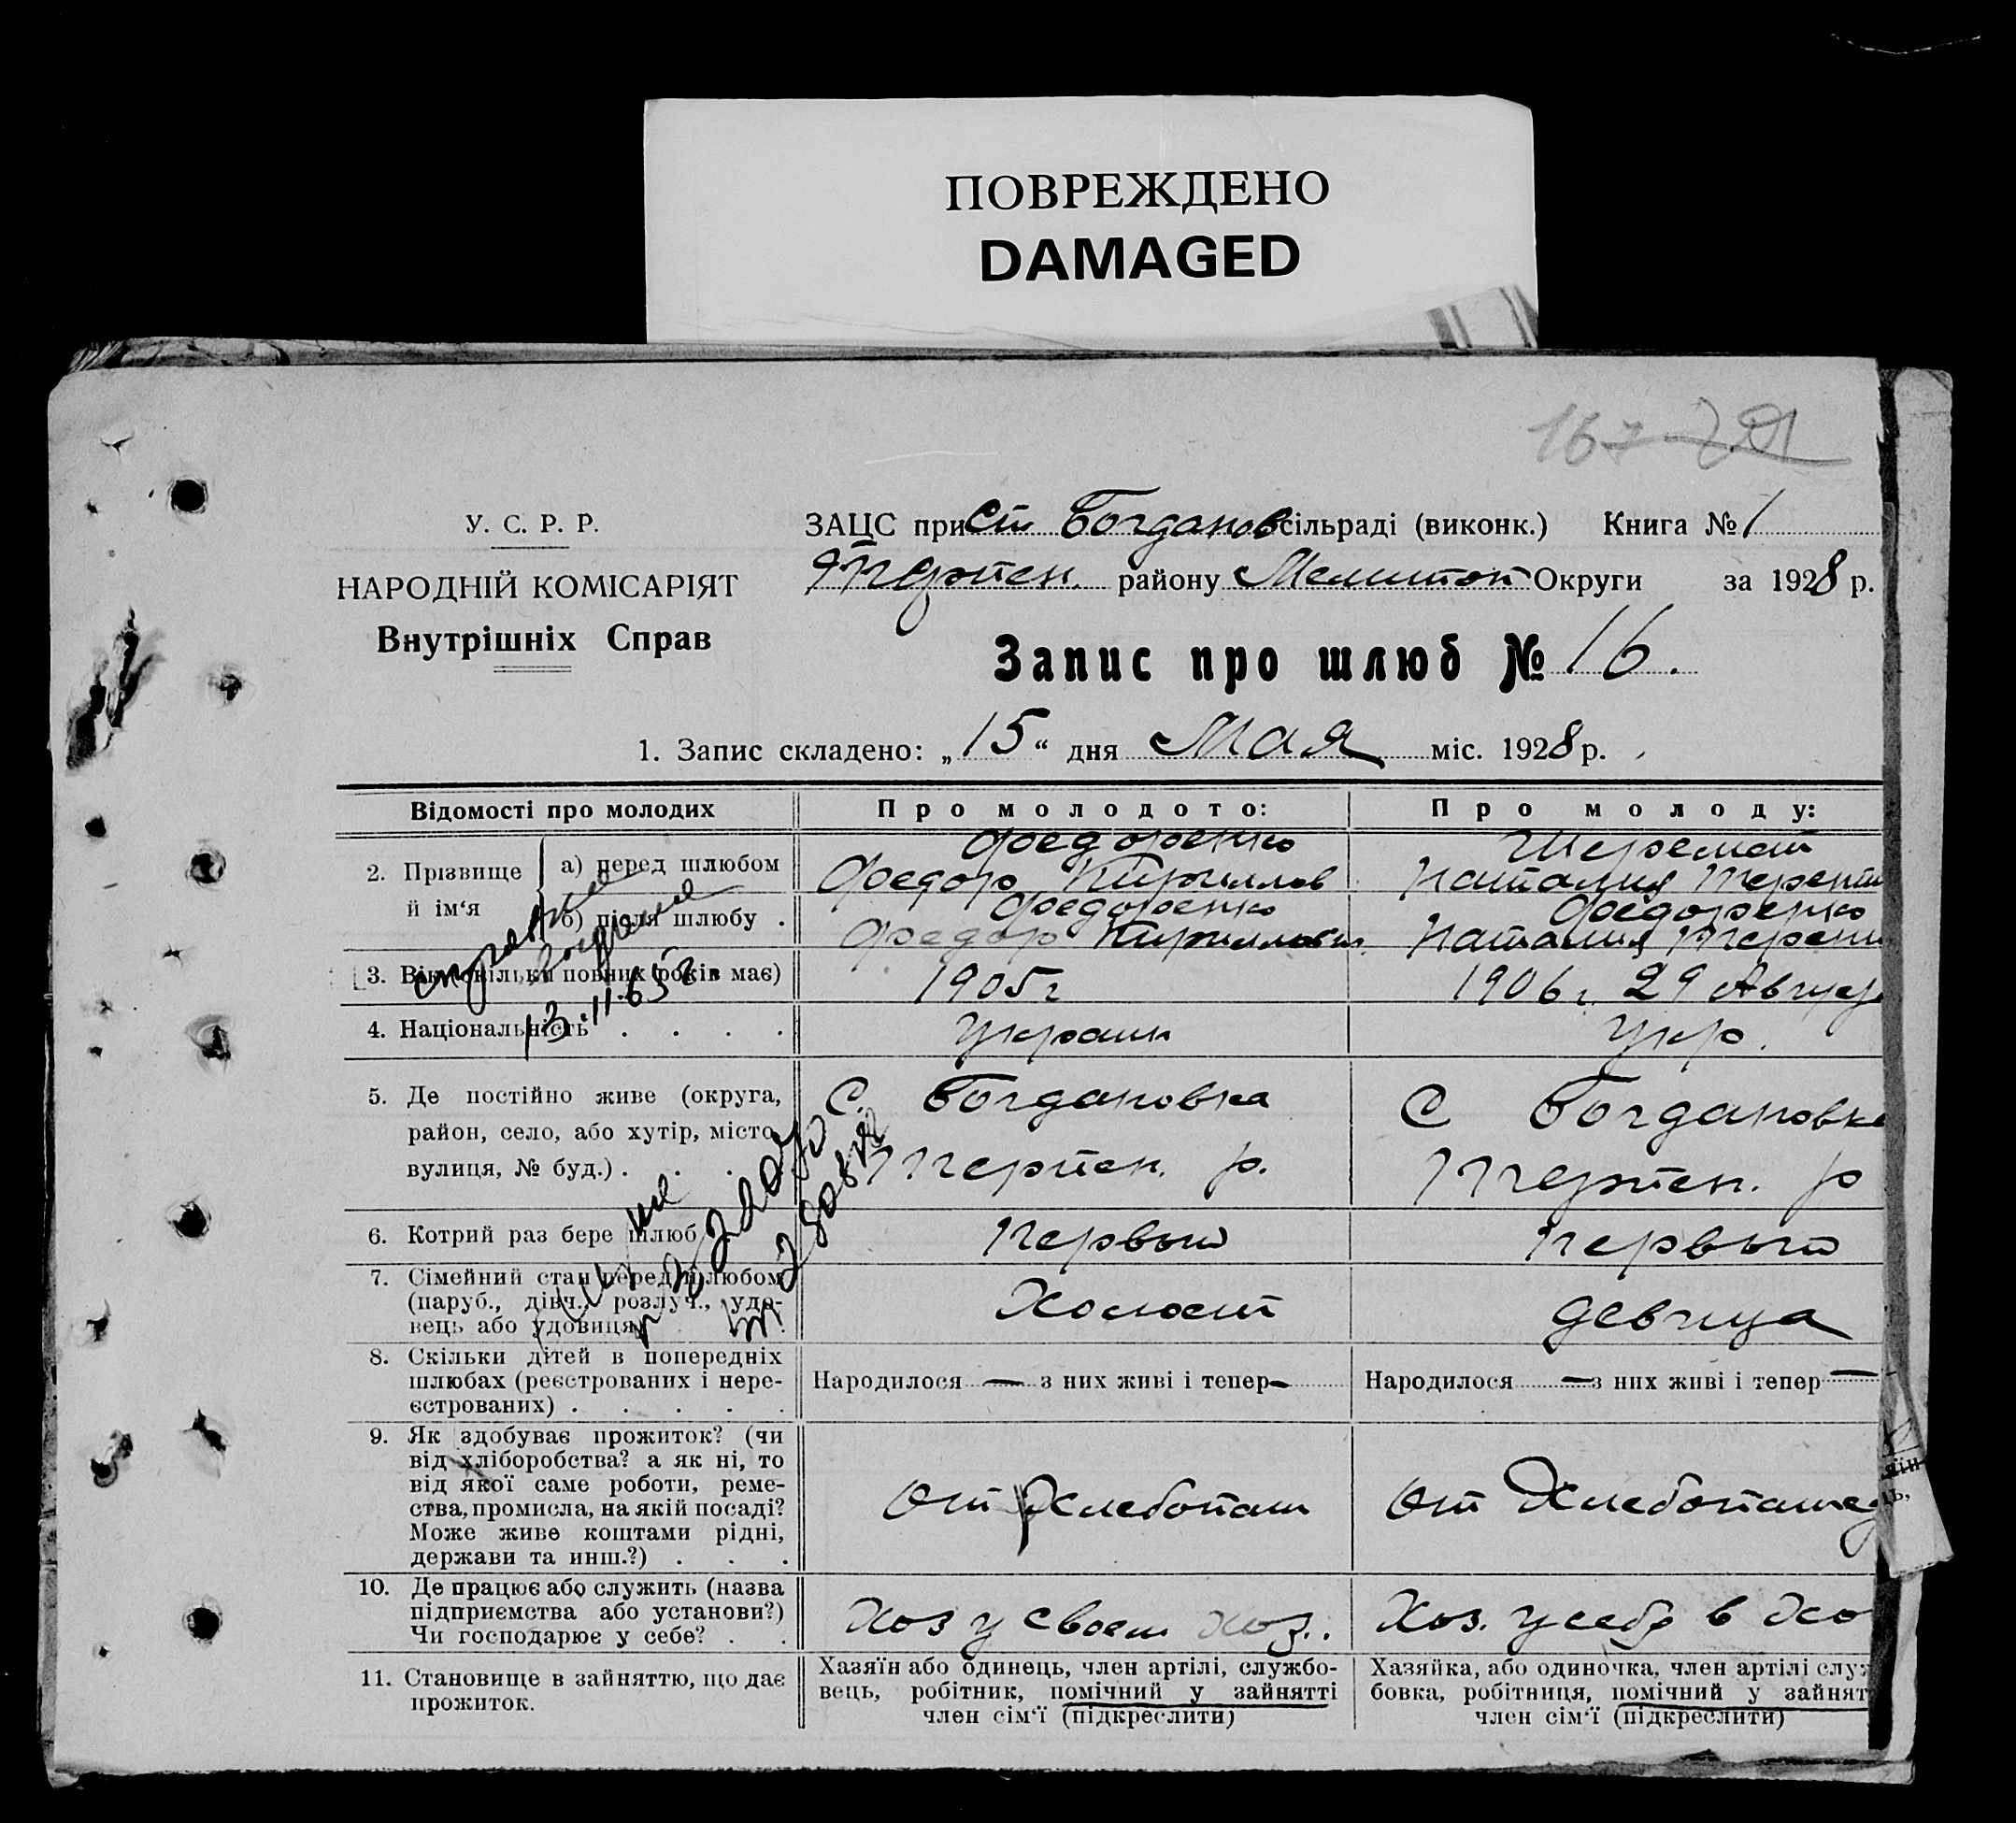 ПОВРЕЖДЕНО
DAMAGED
167
У. С. Р. Р.
НАРОДНІЙ КОМІСАРІЯТ
Внутрішніх Справ
ЗАЦС при Ст Богданов сільраді (виконк.) Книга № 1
Терпен. району Мелитоп Округи за 1928 р.
Запис про шлюб № 16.
1. Запис складено: „15“ дня Мая міс. 1928 р.
Відомості про молодих
Про молодого:
Про молоду:
2. Прізвище й ім‘я
а) перед шлюбом
Федоренко
Федор Кириллов
Шеремет
Наталия Теренти
б) після шлюбу .
Федоренко
Федор Кириллович
Федоренко
Наталия Терент
3. Вік (скільки повних років має)
1905 г
1906 г. 29 Август
справка
13.11.65 г.
4. Національність . . . .
Украин
Укр.
5. Де постійно живе (округа,
район, село, або хутір, місто,
вулиця, № буд.) . . .
С. Богдановка
Терпен. р.
С Богдановка
Терпен. р
6. Котрий раз бере шлюб
Первый
первый
7. Сімейний стан перед шлюбом
(паруб., дівч., розлуч., удо-
вець або удовиця)
Холост
девица
8. Скільки дітей в попередніх
шлюбах (реєстрованих і нере-
єстрованих) . . . . .
Народилося — з них живі і тепер —
Народилося — з них живі і тепер —
9. Як здобуває прожиток? (чи
від хліборобства? а як ні, то
від якої саме роботи, реме-
ства, промисла, на якій посаді?
Може живе коштами рідні,
держави та инш.?) . . .
От Хлебопаш
От Хлебопашед
10. Де працює або служить (назва
підприємства або установи?)
Чи господарює у себе? . .
Хоз у своем хоз..
Хоз. у себе в Хо
11. Становище в зайняттю, що дає
прожиток.
Хазяїн або одинець, член артілі, службо-
вець, робітник, помічний у зайнятті
член сім‘ї (підкреслити)
Хазяйка, або одиночка, член артілі служ
бовка, робітниця, помічний у зайнят
член сім‘ї (підкреслити)